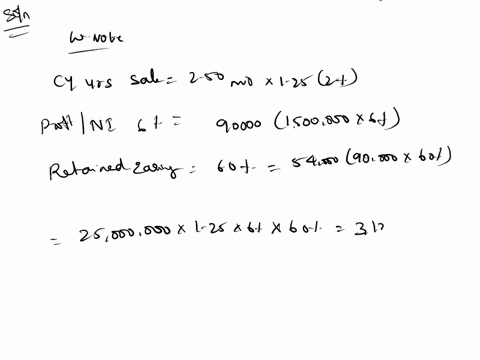 Soln
W. Note
CY yrs Sale = 2.50 mio × 1.25 (2t)
Profit / NI 6% = 90000 (1,500,000 × 6%)
Retained Earning = 60% = 54,000 (90,000 × 60%)
= 25,000,000 × 1.25 × 6% × 60% = 3,12